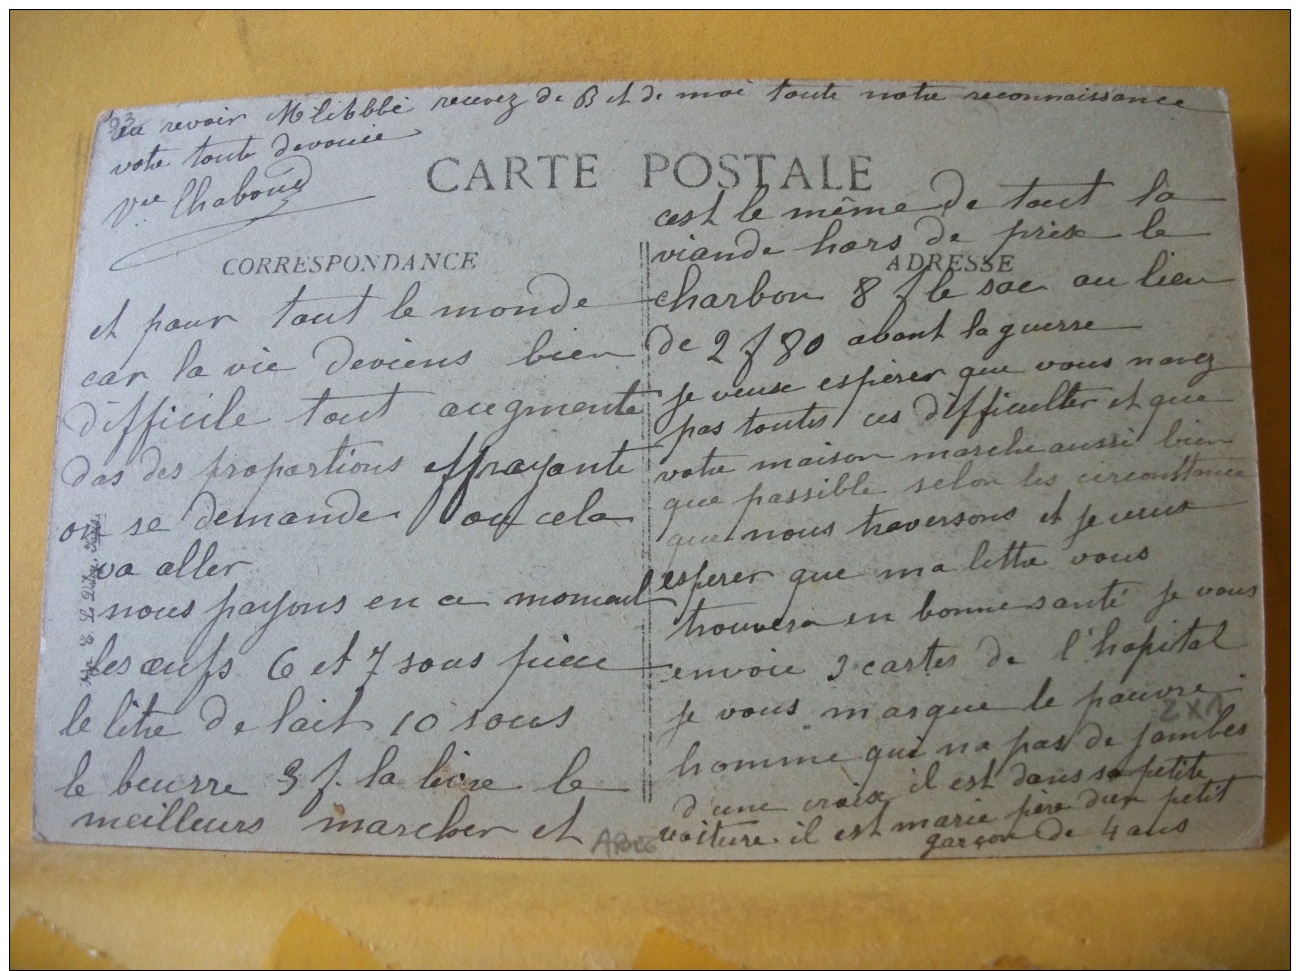 93
au revoir Mr l'Abbbé recevez de B et de moi toute notre reconnaissance
votre toute devouée
Vve Chaboud
CARTE POSTALE
CORRESPONDANCE
et pour tout le monde
car la vie deviens bien
difficile tout augmente
das des proportions effrayante
on se demande ou cela
va aller
nous payons en ce moment
les œufs 6 et 7 sous piece
le litre de lait 10 sous
le beurre 3 f. la livre le
meilleurs marcher et
ADRESSE
cest le même de tout la
viande hors de prix le
charbon 8 f le sac au lieu
de 2 f 80 abant la guerre
je veux esperer que vous navez
pas toutes ces difficulter et que
votre maison marche aussi bien
que possible selon les circonstance
que nous traversons et je veux
esperer que ma lettre vous
trouvera en bonne santé je vous
envoie 3 cartes de l'hopital
je vous marque le pauvre
homme qui na pas de jambes
d'une croix il est dans sa petite
voiture il est marie père d'un petit
garçon de 4 ans